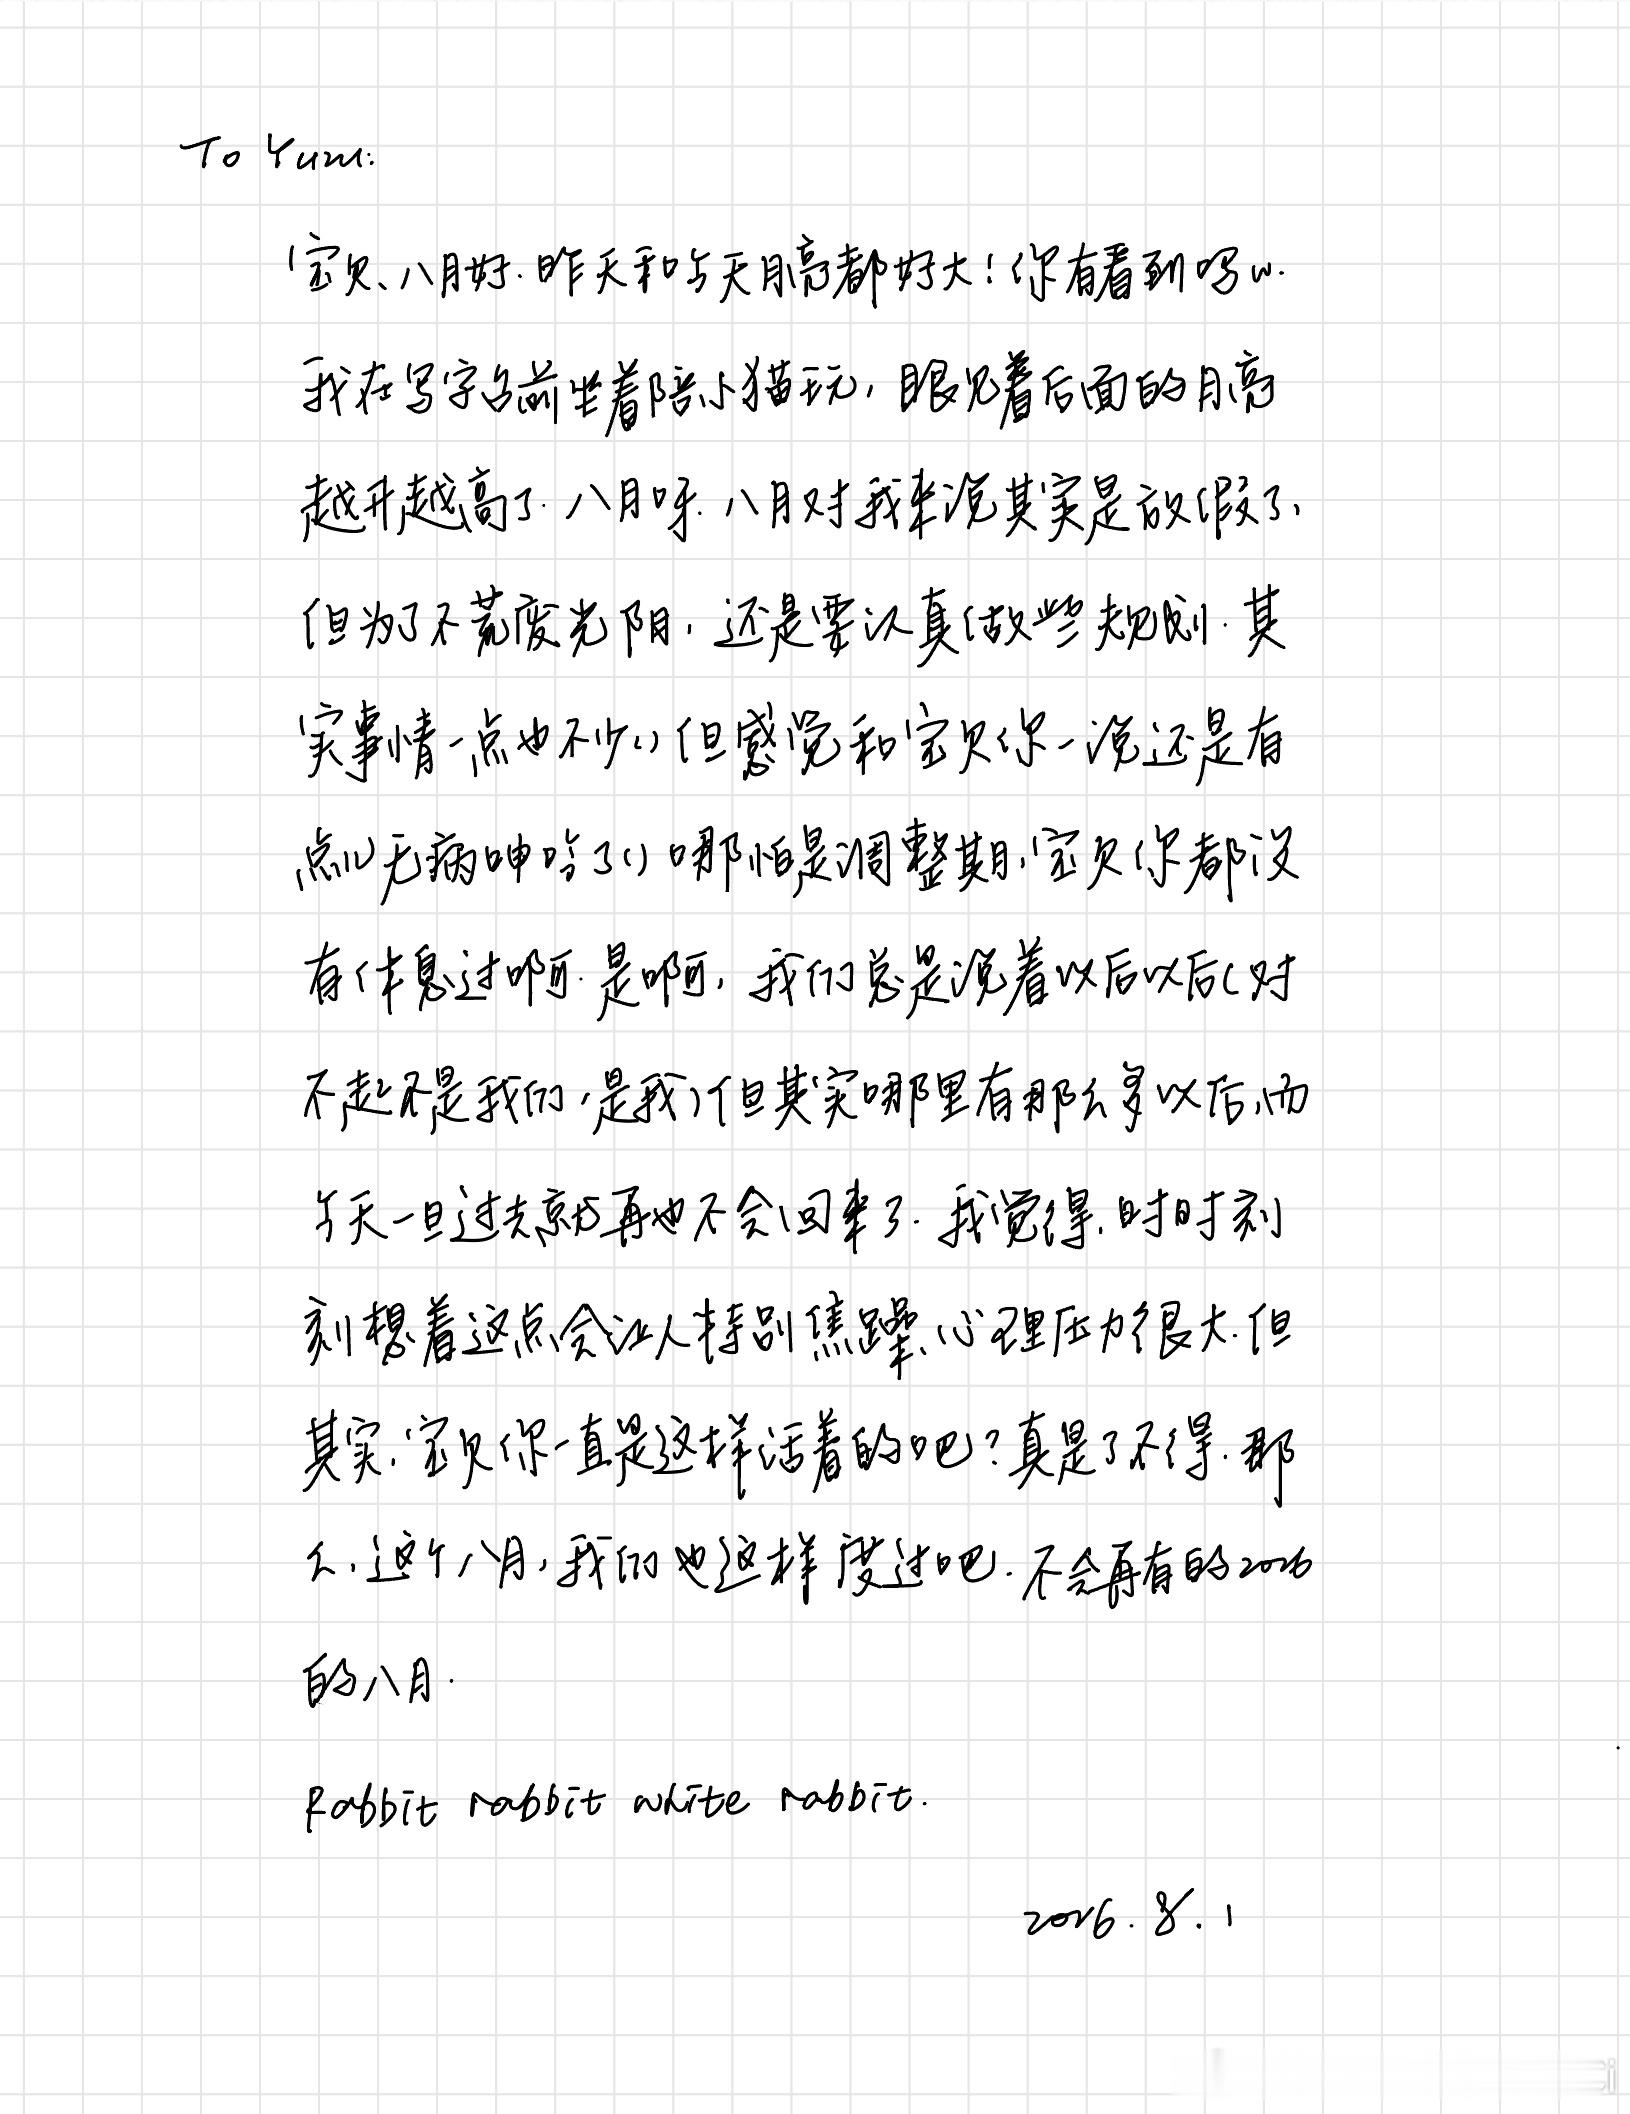 To Yuzu:
宝贝、八月好.昨天和今天月亮都好大!你有看到吗w.
我在写字台前坐着陪小猫玩,眼见着后面的月亮
越升越高了.八月呀.八月对我来说其实是放假了、
但为了不荒废光阴,还是要认真做些规划.其
实事情一点也不少()但感觉和宝贝你一说还是有
点儿无病呻吟了()哪怕是调整期、宝贝你都没
有休息过啊.是啊,我们总是说着以后以后(对
不起不是我们,是我)但其实哪里有那么多以后,而
今天一旦过去就再也不会回来了.我觉得、时时刻
刻想着这点会让人特别焦躁、心理压力很大.但
其实、宝贝你一直是这样活着的吧?真是了不得.那
么、这个八月,我们也这样度过吧.不会再有的2026
的八月.
Rabbit rabbit white rabbit.
2026.8.1